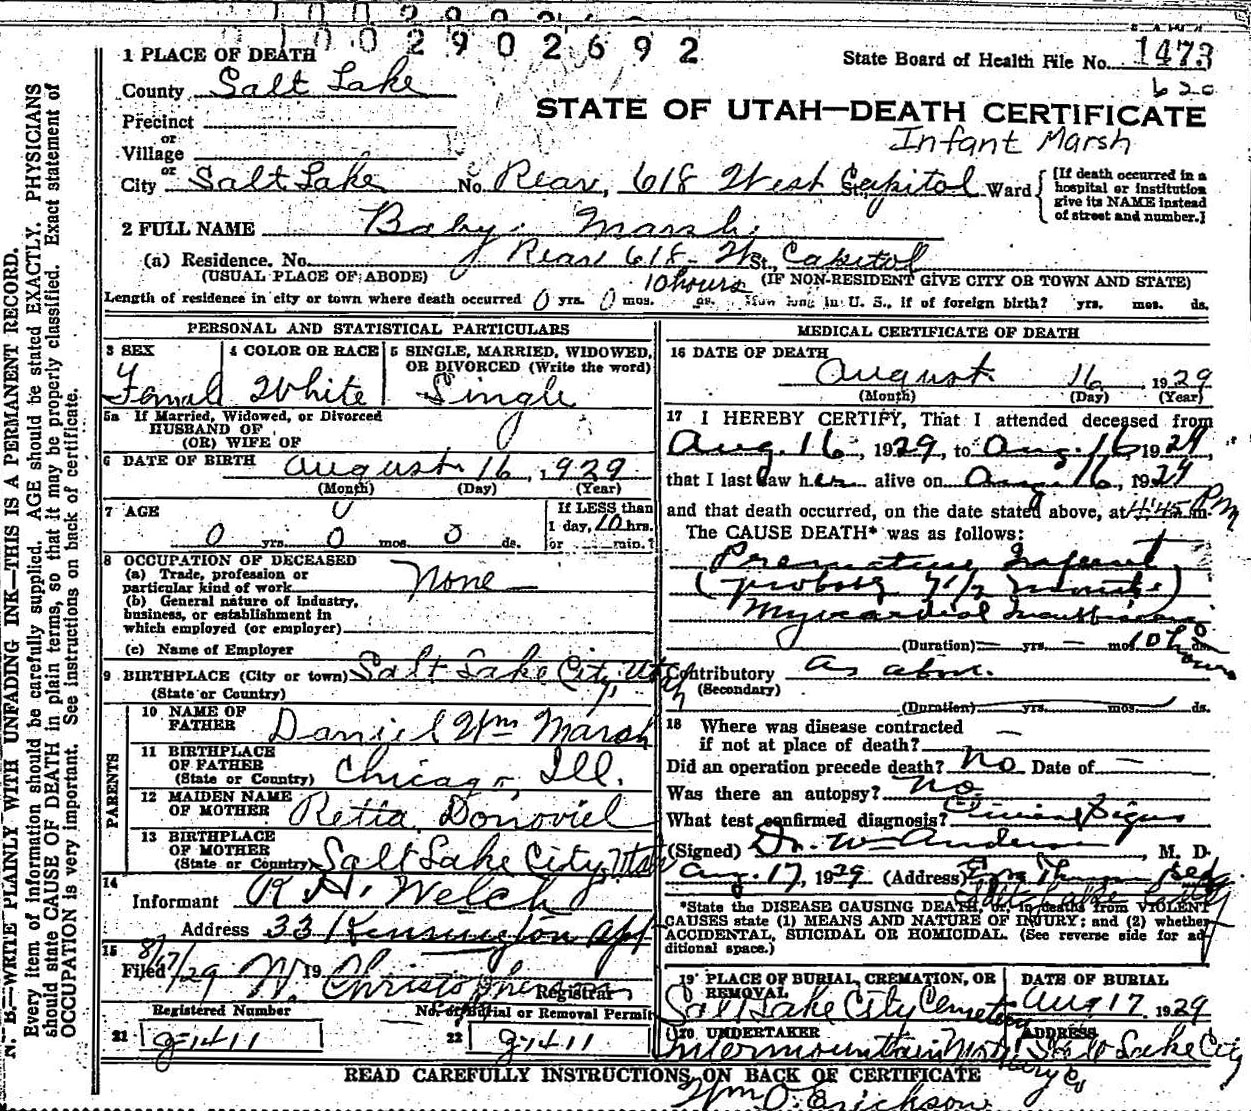 1002902692
1 PLACE OF DEATH
State Board of Health File No. 1473
620
County Salt Lake
STATE OF UTAH—DEATH CERTIFICATE
Precinct
or
Infant Marsh
Village
or
City Salt Lake No. Rear, 618 West Capitol St., Ward
[If death occurred in a hospital or institution give its NAME instead of street and number.]
2 FULL NAME Baby Marsh
(a) Residence. No. Rear 618 - W St., Capitol
(USUAL PLACE OF ABODE) (IF NON-RESIDENT GIVE CITY OR TOWN AND STATE)
10 hours
Length of residence in city or town where death occurred 0 yrs. 0 mos. ds. How long in U. S., if of foreign birth? yrs. mos. ds.
PERSONAL AND STATISTICAL PARTICULARS
3 SEX 4 COLOR OR RACE 5 SINGLE, MARRIED, WIDOWED, OR DIVORCED (Write the word)
Female White Single
5a If Married, Widowed, or Divorced
HUSBAND OF
(OR) WIFE OF
6 DATE OF BIRTH August 16, 1929
(Month) (Day) (Year)
7 AGE
0 yrs. 0 mos. 0 ds.
If LESS than
1 day, 10 hrs.
or min.?
8 OCCUPATION OF DECEASED
(a) Trade, profession or
particular kind of work None
(b) General nature of industry,
business, or establishment in
which employed (or employer)
(c) Name of Employer
9 BIRTHPLACE (City or town) Salt Lake City, Utah
(State or Country)
PARENTS
10 NAME OF
FATHER Daniel Wm Marsh
11 BIRTHPLACE
OF FATHER
(State or Country) Chicago, Ill.
12 MAIDEN NAME
OF MOTHER Retta Donoviel
13 BIRTHPLACE
OF MOTHER
(State or Country) Salt Lake City, Utah
14
Informant R. H. Welch
Address 33 Kensington Apt
15
Filed 8/17/29 19 W. Christopherson Registrar
Registered Number No. of Burial or Removal Permit
21 g-1411 22 g-1411
MEDICAL CERTIFICATE OF DEATH
16 DATE OF DEATH
August 16, 1929
(Month) (Day) (Year)
17 I HEREBY CERTIFY, That I attended deceased from
Aug. 16, 1929, to Aug. 16 1929,
that I last saw her alive on Aug 16, 1929
and that death occurred, on the date stated above, at 4:45 Pm
The CAUSE DEATH* was as follows:
Premature Infant
(probably 7 1/2 months)
Myocardial Insufficiency
(Duration) — yrs. — mos. 10 hours ds.
Contributory As above.
(Secondary)
(Duration) yrs. mos. ds.
18 Where was disease contracted
if not at place of death? —
Did an operation precede death? No Date of —
Was there an autopsy? No
What test confirmed diagnosis? Clinical Signs
(Signed) Dr. Wm Anderson, M. D.
Aug. 17, 1929 (Address) Ezra Thompson Bldg
Salt Lake City
*State the DISEASE CAUSING DEATH, or, in deaths from VIOLENT
CAUSES state (1) MEANS AND NATURE OF INJURY; and (2) whether
ACCIDENTAL, SUICIDAL OR HOMICIDAL. (See reverse side for ad
ditional space.)
19 PLACE OF BURIAL, CREMATION, OR REMOVAL DATE OF BURIAL
Salt Lake City Cemetery Aug 17, 1929
20 UNDERTAKER ADDRESS
Intermountain Mortuary Co Salt Lake City
READ CAREFULLY INSTRUCTIONS ON BACK OF CERTIFICATE
Wm O. Erickson
N. B.—WRITE PLAINLY WITH UNFADING INK—THIS IS A PERMANENT RECORD.
Every item of information should be carefully supplied. AGE should be stated EXACTLY. PHYSICIANS
should state CAUSE OF DEATH in plain terms, so that it may be properly classified. Exact statement of
OCCUPATION is very important. See instructions on back of certificate.